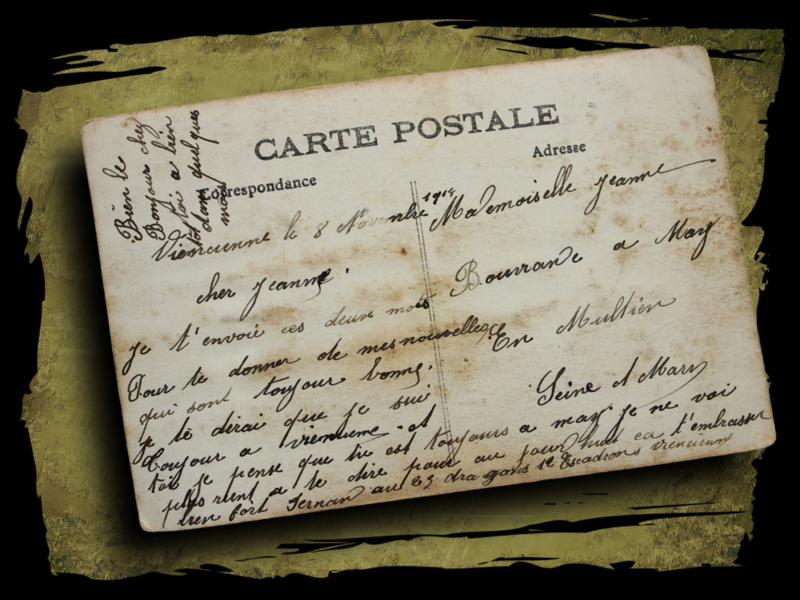 CARTE POSTALE
Correspondance
Adresse
Bien le
Bonjour chez
toi a bien
tot dans quelques
mois
Viencienne le 8 Novembre 1915
cher Jeanne
je t'envoie ces deux mots
Pour te donner de mes nouvelles
qui sont toujour bonne.
je te dirai que je sui
toujour a viencienne et
toi je pense que tu est toujours a may. je ne voi
plus rient a te dire pour au jourd'hui ca t'embrasser
bien fort Fernan au 23 dragons 1e Escadrons viencienne
Mademoiselle Jeanne
Bourrande a May
En Multien
Seine et Marn